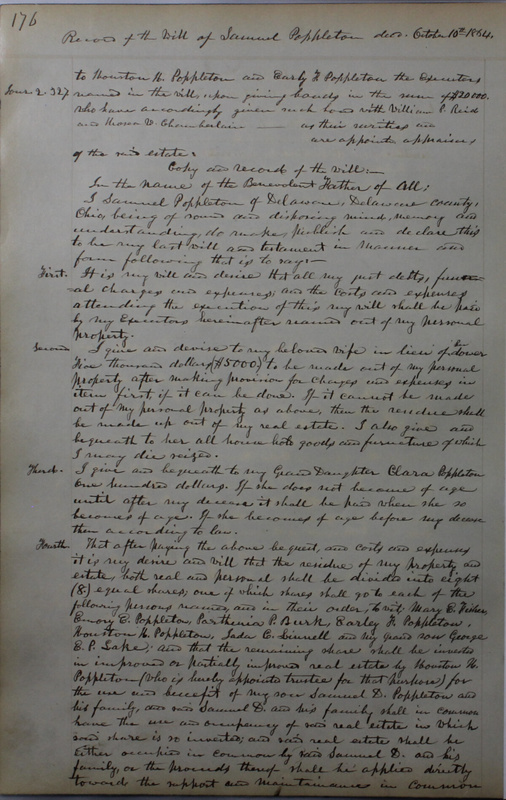 176
Record of the Will of Samuel Poppleton decd. October 10th 1864.
to Houston H. Poppleton and Early F. Poppleton the Executors
Jour. 2. 327 named in the will, upon giving bonds in the sum of $20000.
who have accordingly given such bond with William P. Reid
and Hosea W. Chamberlain — as their sureties and
are appoint appraisers
of the said estate:
Copy and record of the Will:—
In the name of the Benevolent Father of All;
I Samuel Poppleton of Delaware, Delaware County,
Ohio, being of sound and disposing mind, memory and
understanding, do make, publish and declare this
to be my last will and testament in manner and
form following that is to say:—
First. It is my will and desire that all my just debts, funer-
al charges and expenses, and the costs and expenses
attending the execution of this my will shall be paid
by my Executors hereinafter named out of my personal
property.
Second I give and devise to my beloved wife in lieu of dower
Five thousand dollars ($5000) to be made out of my personal
property after making provision for charges and expenses in
item first, if it can be done. If it cannot be made
out of my personal property as above, then the residue shall
be made up out of my real estate. I also give and
bequeath to her all house hold goods and furniture of which
I may die seized.
Third. I give and bequeath to my Grand Daughter Clara Poppleton
One hundred dollars. If she does not become of age
until after my decease it shall be paid when she so
becomes of age. If she becomes of age before my decease
then according to law.
Fourth That after paying the above bequest, and costs and expenses
it is my desire and will that the residue of my property, and
estate both real and personal shall be divided into eight
(8) equal shares; one of which shares shall go to each of the
following persons named, and in their order, to wit, Mary E. Fisher,
Emory E. Poppleton, Parthenia P. Burk, Earley F. Poppleton,
Houston H. Poppleton, Sada C. Linnell and my grand son George
E. P. Lake; and that the remaining share shall be invested
in improved or partially improved real estate by Houston H.
Poppleton (who is hereby appointed trustee for that purpose) for
the use and benefit of my son Samuel D. Poppleton and
his family, and said Samuel D. and his family shall in common
have the use and occupancy of said real estate in which
said share is so invested; and said real estate shall be
either occupied in common by said Samuel D. and his
family, or the proceeds thereof shall be applied directly
toward the support and maintainance in common